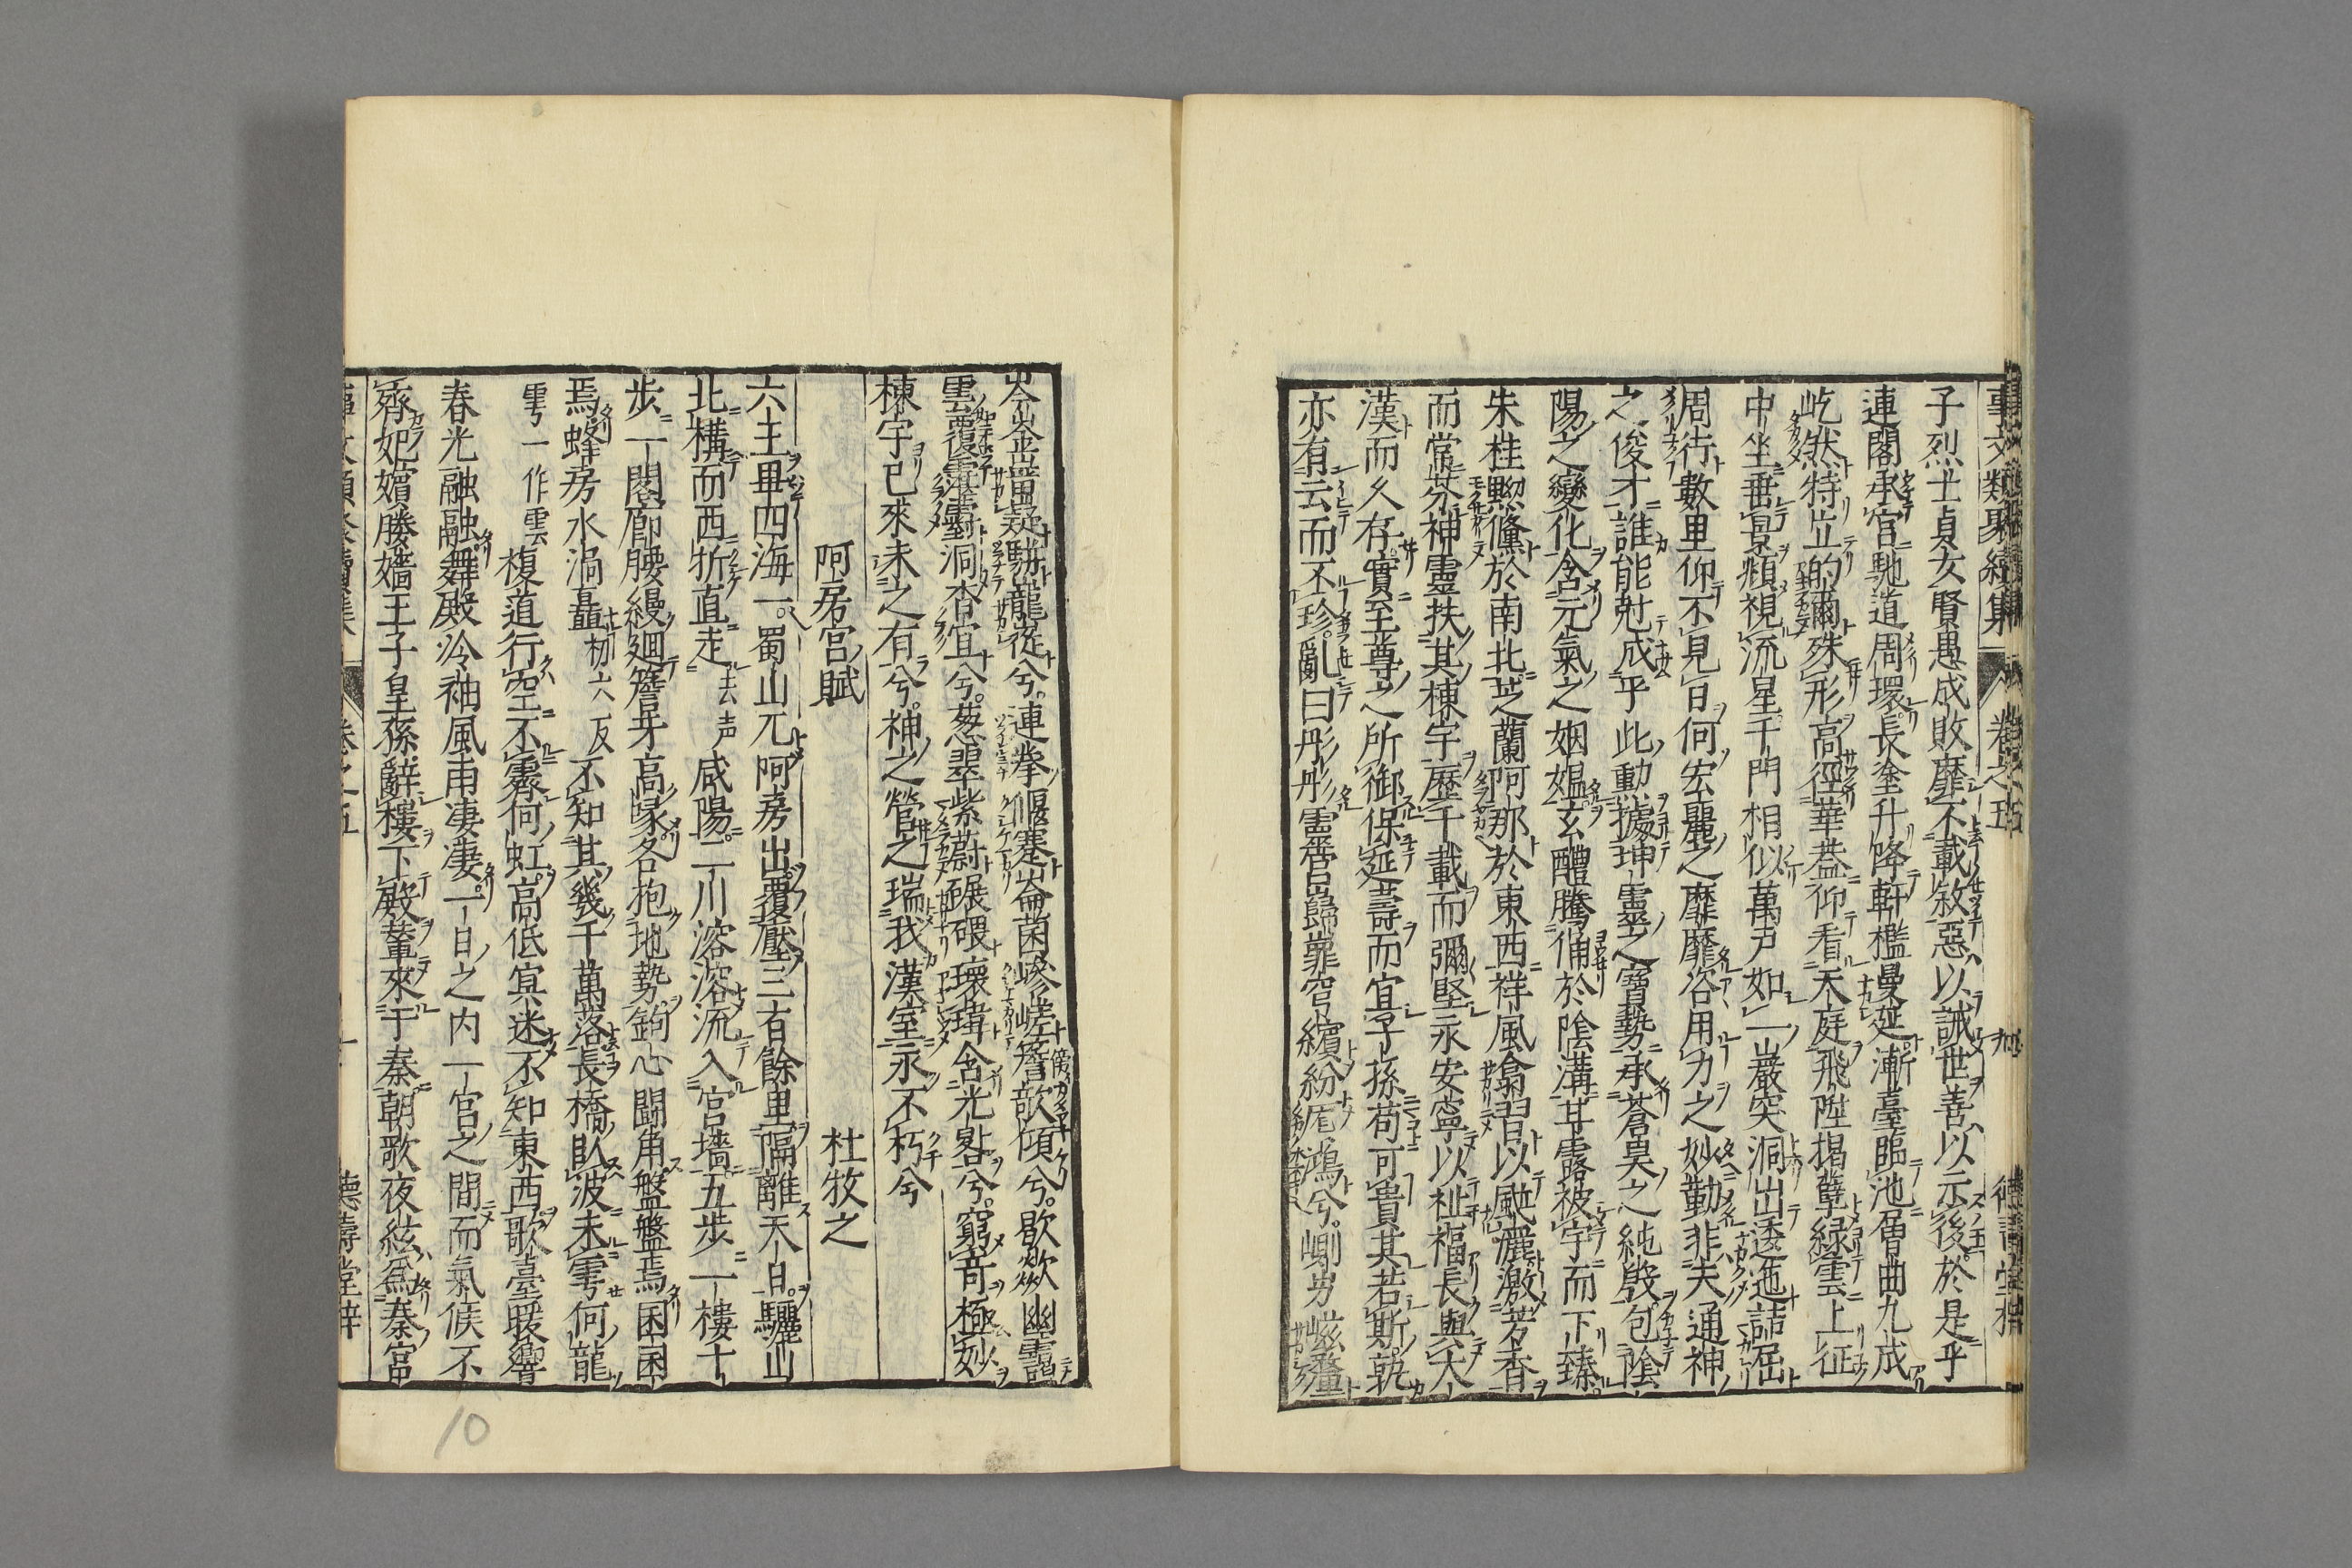 事文類聚續集 卷之五
子烈士貞女賢愚成敗靡不載敘惡以誡世善以示後於是乎
連閣承宮馳道周環長塗升降軒檻曼延漸臺臨池層曲九成
屹然特立的爾殊形高徑華蓋仰看天庭飛陛揭孽緑雲上征
中坐垂景頫視流星千門相似萬戸如一巖突洞出逶迤詰屈
周行數里仰不見日何宏麗之靡靡咨用力之妙勤非夫通神
之俊才誰能尅成乎此勳據坤靈之寶勢承蒼昊之純殷包陰
陽之變化含元氣之姻媼玄醴騰涌於陰溝甘露被宇而下臻
朱桂黝鯈於南北芝蘭阿那於東西祥風翕習以颯灑激芳香
而常芬神靈扶其棟宇歷千載而彌堅永安寧以祉福長與大
漢而久存實至尊之所御保延壽而宜子孫苟可貴其若斯孰
亦有云而不珍亂曰彤彤靈宮巋嶵穹繽紛厖鴻兮崱屴嵫釐
岑崟崰嶷駢巃嵸兮連拳偃蹇崙菌嵾嵯簷欹傾兮歇欻幽靄
雲覆霮䨴洞杳㝠兮葱翠紫蔚碨磈瓌瑋含光晷兮窮奇極妙
棟宇已來未之有兮神之營之瑞我漢室永不朽兮
阿房宮賦 杜牧之
六王畢四海一蜀山兀阿房出覆壓三百餘里隔離天日驪山
北構而西折直走去声咸陽二川溶溶流入宮墻五步一樓十
步一閣廊腰縵廻簷牙高啄各抱地勢鉤心鬪角盤盤焉囷囷
焉蜂房水渦矗初六反不知其幾千萬落長橋臥波未雩何龍
雩一作雲複道行空不霽何虹高低㝠迷不知東西歌臺暖響
春光融融舞殿冷袖風雨凄凄一日之內一宮之間而氣候不
齊妃嬪媵嬙王子皇孫辭樓下殿輦來于秦朝歌夜絃為秦宮